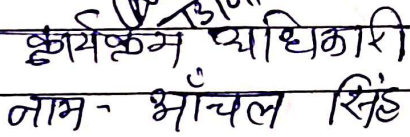 कार्यक्रम अधिकारी
नाम - आँचल सिंह